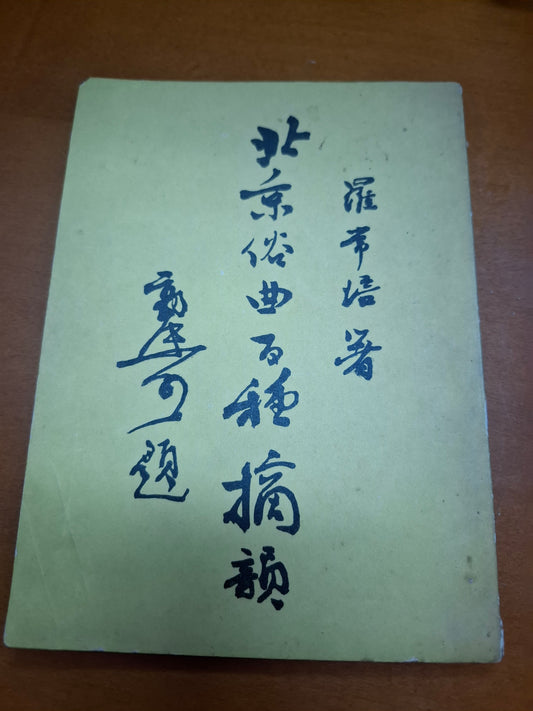 羅常培著
北京俗曲百種摘韻
題